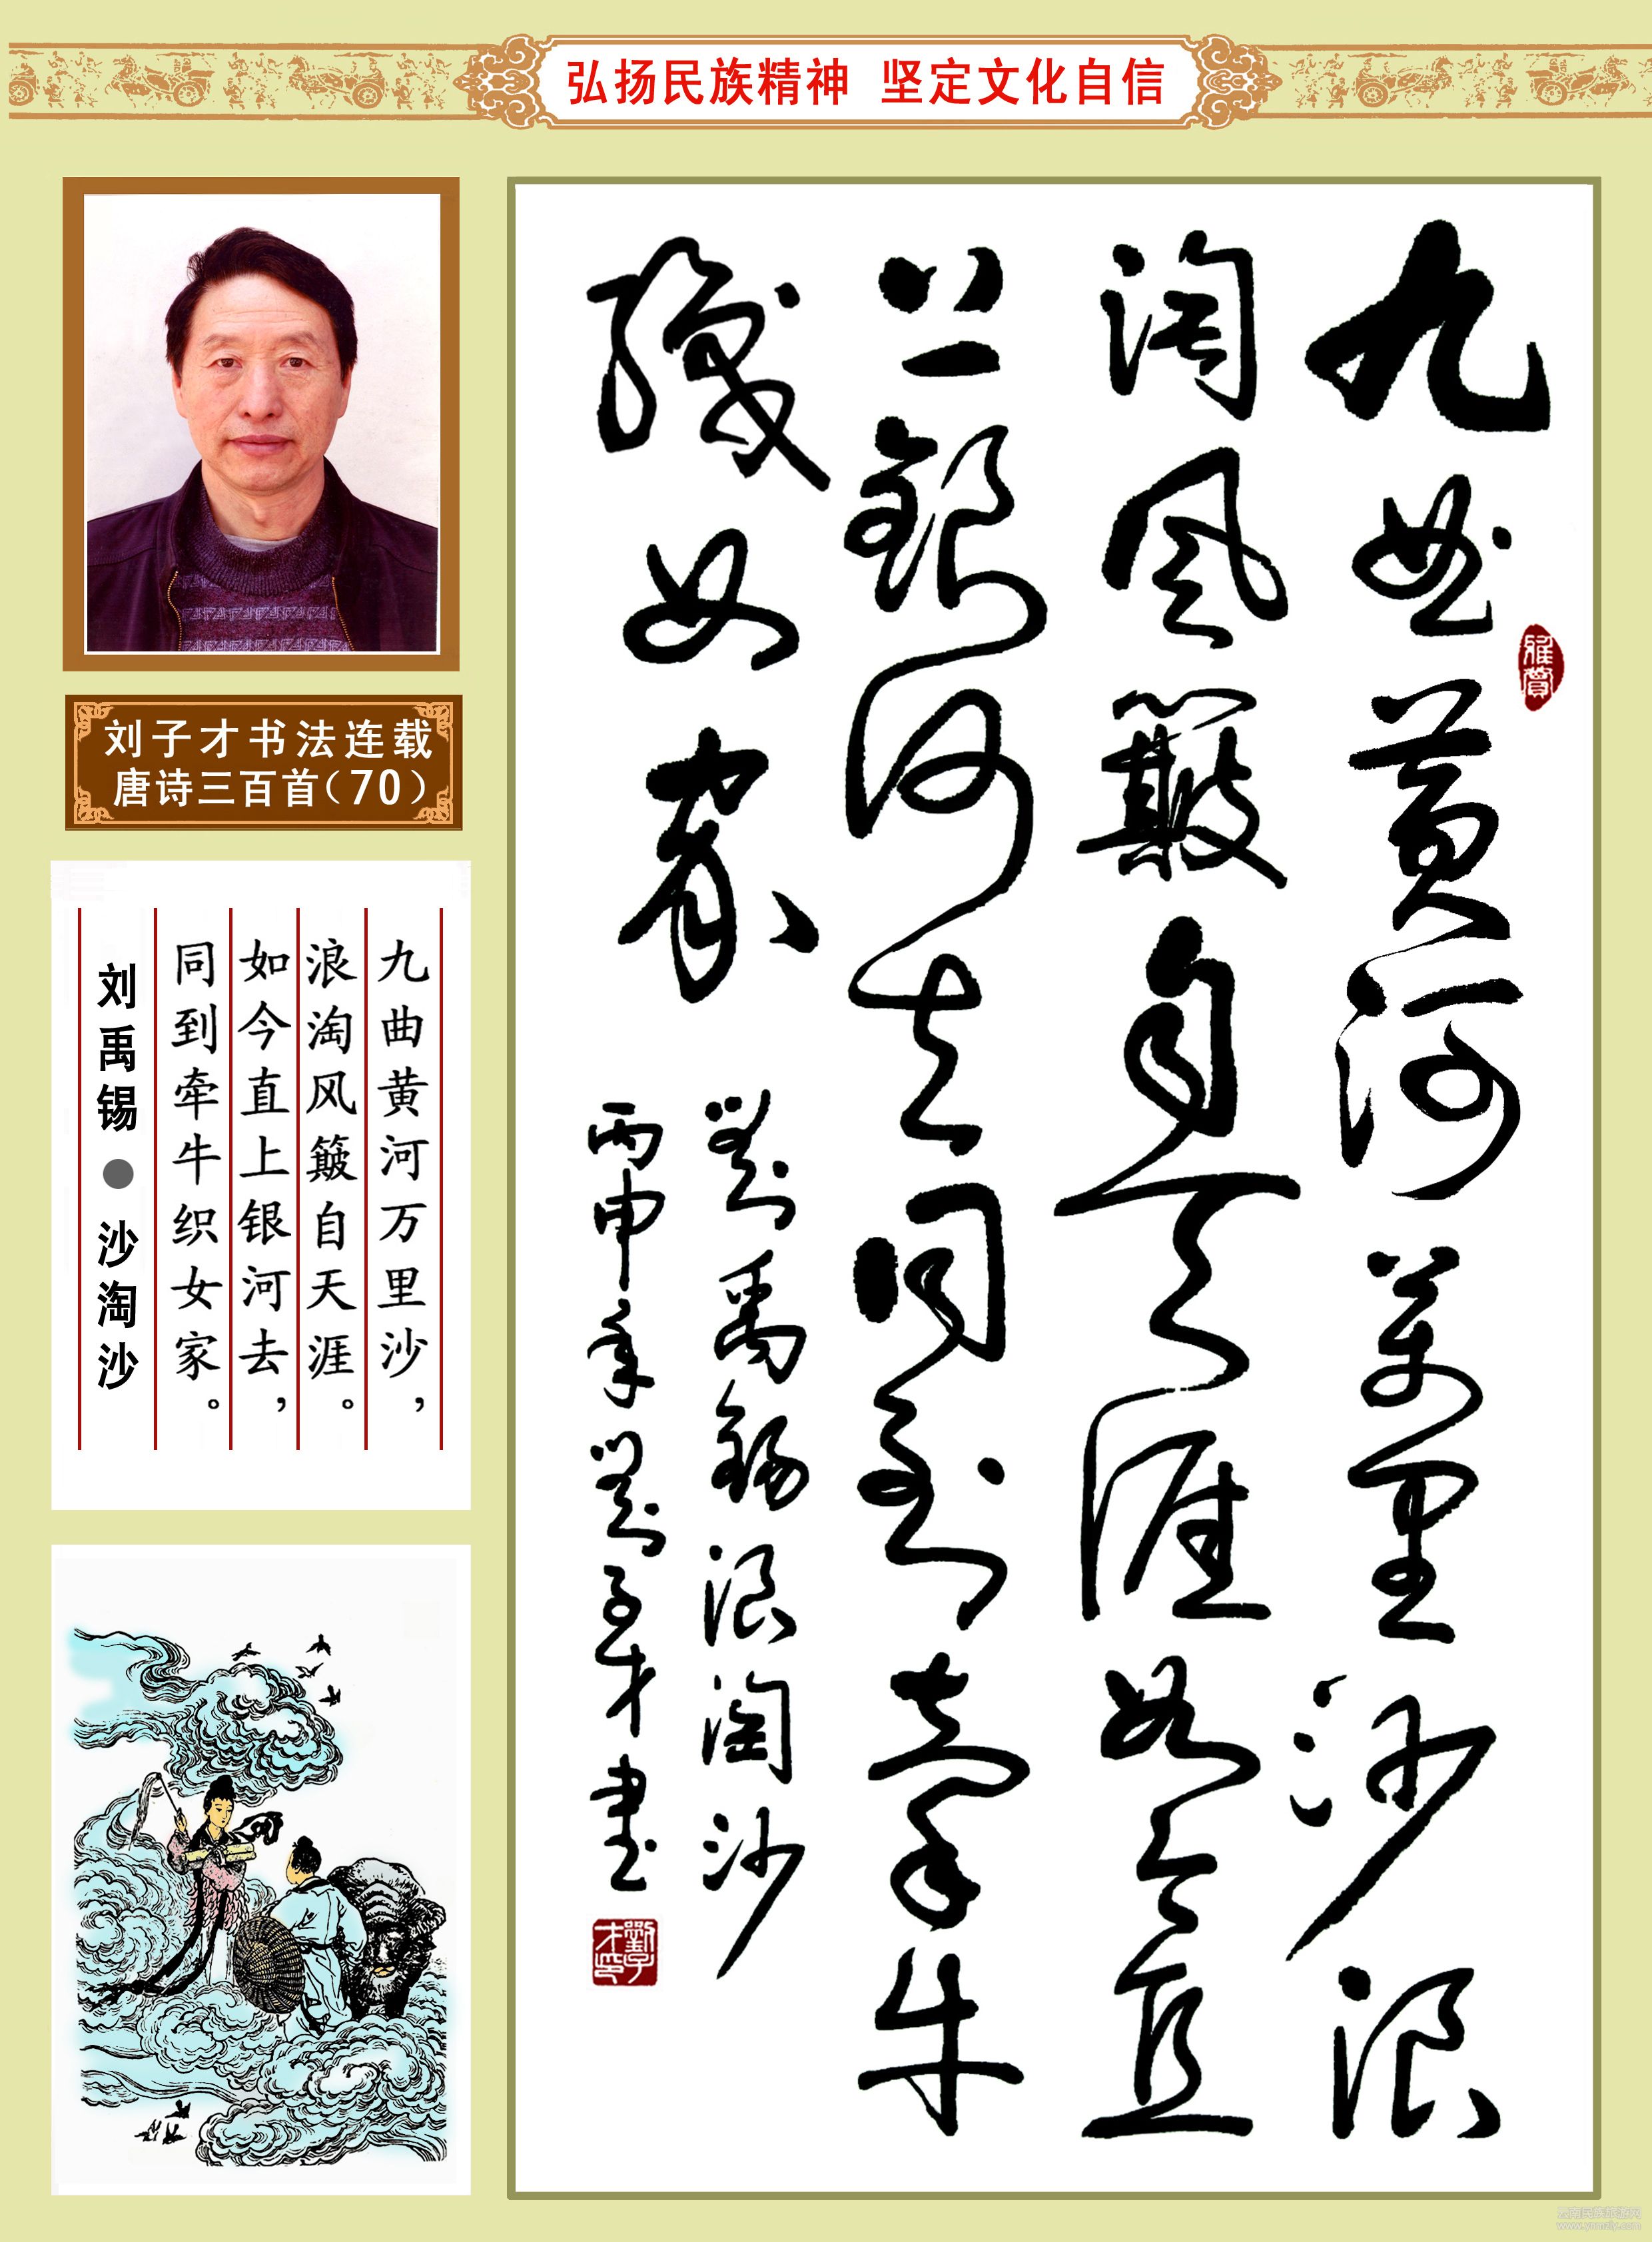 弘扬民族精神 坚定文化自信
刘子才书法连载
唐诗三百首（70）
九曲黄河万里沙，
浪淘风簸自天涯。
如今直上银河去，
同到牵牛织女家。
刘禹锡 ● 沙淘沙
九曲黃河萬里沙浪
淘風簸自天涯如今直
上銀河去同到牽牛
織女家
劉禹錫浪淘沙
丙申年劉子才書
雅賞
劉子才印